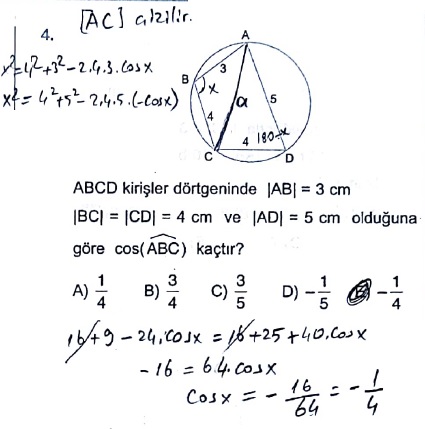 4. [AC] çizilir.
x²=4²+3²-2.4.3.cosx
x²=4²+5²-2.4.5.(-cosx)
A
B
3
x
a
5
4
4
180-x
C
D
ABCD kirişler dörtgeninde |AB| = 3 cm
|BC| = |CD| = 4 cm ve |AD| = 5 cm olduğuna
göre cos(ABC) kaçtır?
A) 1/4 B) 3/4 C) 3/5 D) -1/5 E) -1/4
16+9-24.cosx = 16+25+40.cosx
-16 = 64.cosx
cosx = -16/64 = -1/4